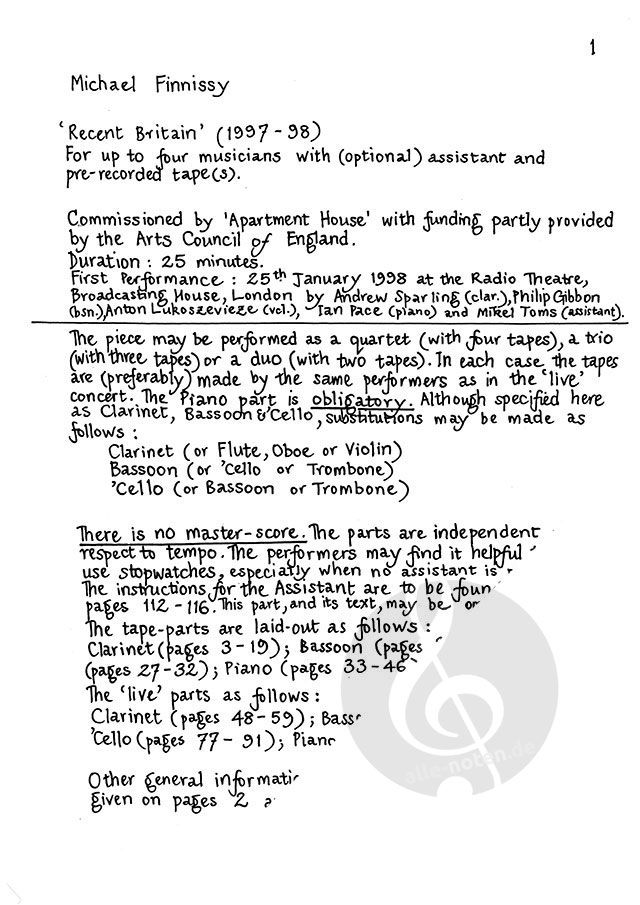 1
Michael Finnissy
'Recent Britain' (1997-98)
For up to four musicians with (optional) assistant and
pre-recorded tape(s).
Commissioned by 'Apartment House' with funding partly provided
by the Arts Council of England.
Duration : 25 minutes.
First Performance : 25th January 1998 at the Radio Theatre,
Broadcasting House, London by Andrew Sparling (clar.), Philip Gibbon
(bsn.), Anton Lukoszevieze (vcl.), Ian Pace (piano) and Mikel Toms (assistant).
The piece may be performed as a quartet (with four tapes), a trio
(with three tapes) or a duo (with two tapes). In each case the tapes
are (preferably) made by the same performers as in the 'live'
concert. The Piano part is obligatory. Although specified here
as Clarinet, Bassoon & 'Cello, substitutions may be made as
follows :
Clarinet (or Flute, Oboe or Violin)
Bassoon (or 'Cello or Trombone)
'Cello (or Bassoon or Trombone)
There is no master-score. The parts are independent
respect to tempo. The performers may find it helpful
use stopwatches, especially when no assistant is
The instructions for the Assistant are to be foun
pages 112-116. This part, and its text, may be or
The tape-parts are laid-out as follows :
Clarinet (pages 3-19); Bassoon (pages
(pages 27-32); Piano (pages 33-46
The 'live' parts as follows :
Clarinet (pages 48-59); Bass
'Cello (pages 77-91); Pian
alle-noten.de
Other general informati
given on pages 2